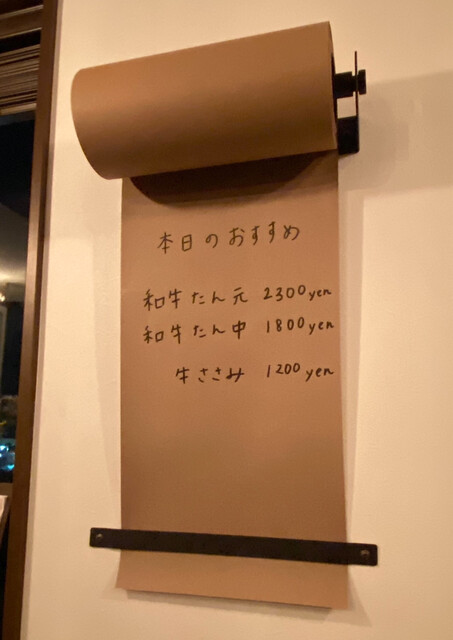 本日のおすすめ
和牛たん元 2300yen
和牛たん中 1800yen
牛ささみ 1200yen